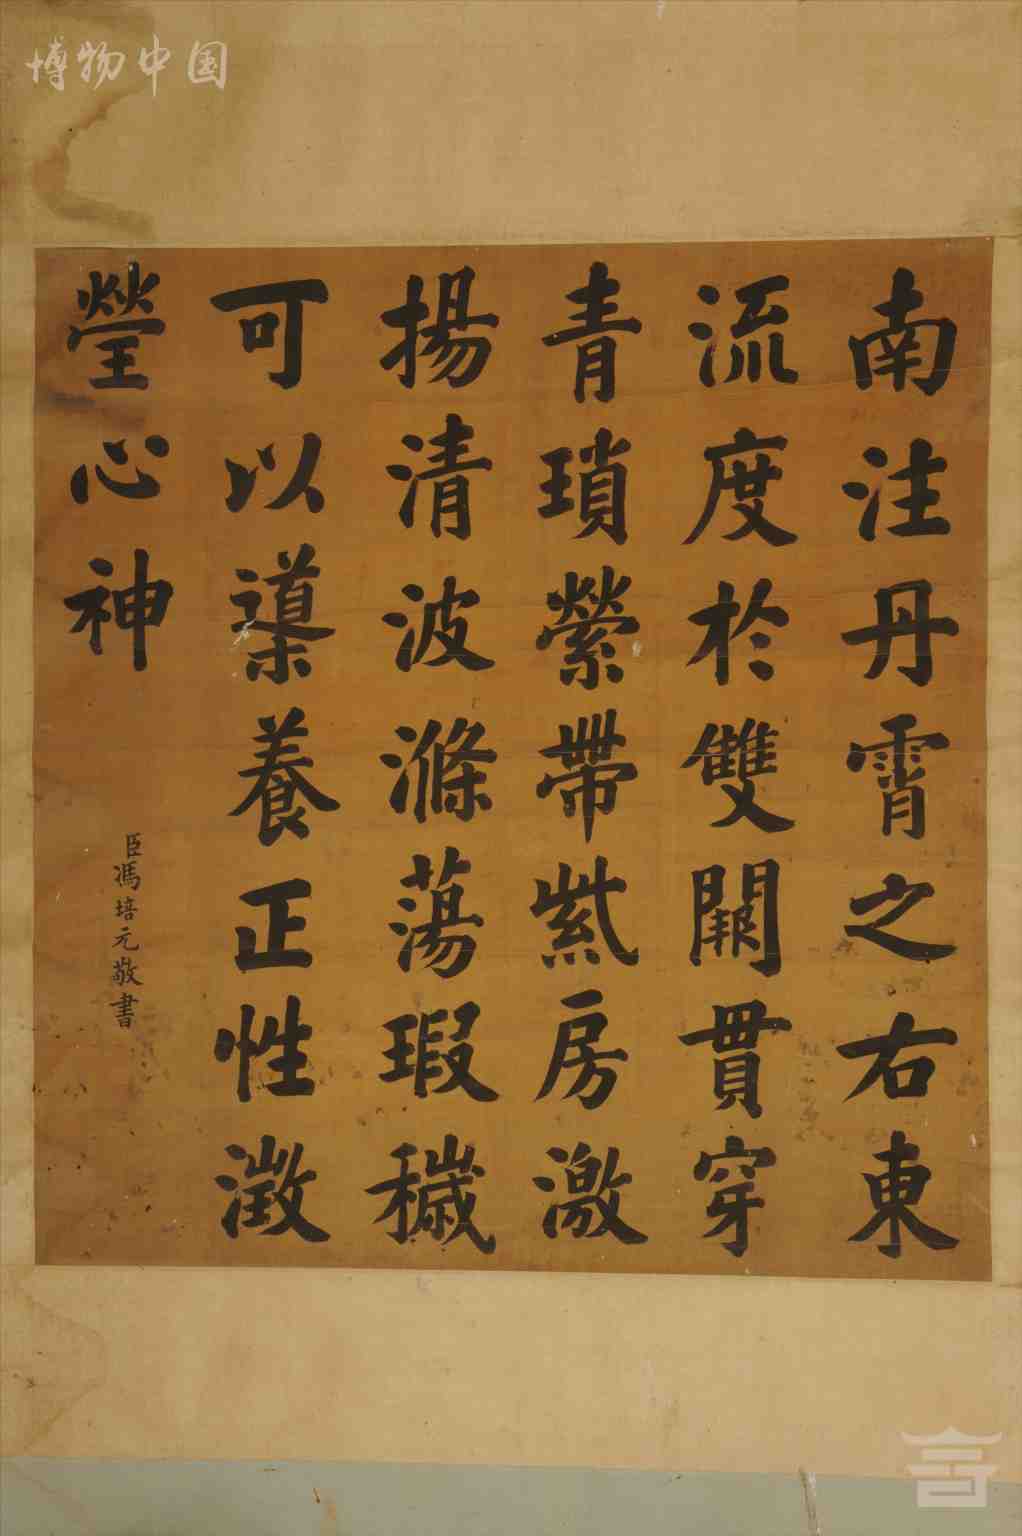 博物中国
南注丹霄之右東
流度於雙闕貫穿
青瑣縈帶紫房激
揚清波滌蕩瑕穢
可以導養正性澂
瑩心神
臣馮培元敬書